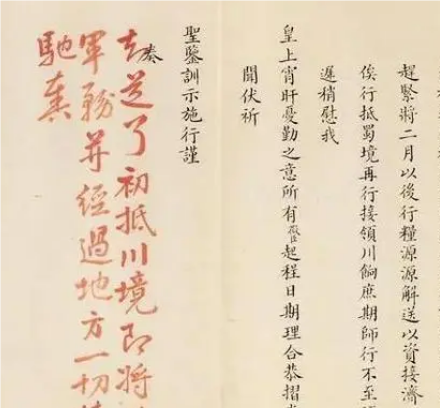 趕緊將二月以後行糧源源解送以資接濟
俟行抵蜀境再行接領川餉庶期師行不至
遲稍慰我
皇上宵旰憂勤之意所有微臣起程日期理合恭摺
聞伏祈
聖鑒訓示施行謹
奏
知道了初抵川境即將
軍務並經過地方一切
馳奏